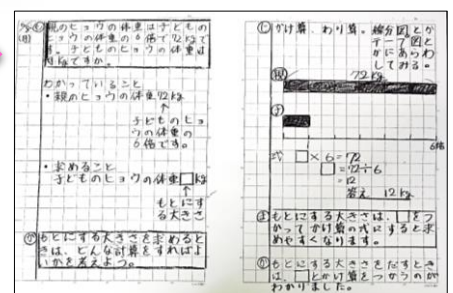 親のヒョウの体重は子どもの
ヒョウの体重の6倍で72kgで
す。子どものヒョウの体重は
何kgですか。
わかっていること
・親のヒョウの体重72kg
↑
子どものヒョ
ウの体重の
6倍です。
・求めること
子どものヒョウの体重□kg
↑
もとにす
る大きさ
もとにする大きさを求めると
きは、どんな計算をすればよ
いかを考えよう。
かけ算、わり算。線分図とか
テープ図と
かにあらわ
してみる。
72kg
親
子
6倍
式 □×6=72
□=72÷6
=12
答え 12kg
ま もとにする大きさは、□をつ
かってかけ算の式にすると求
めやすくなります。
もとにする大きさをだすとき
は、□とかけ算をつかうのが
わかりました。